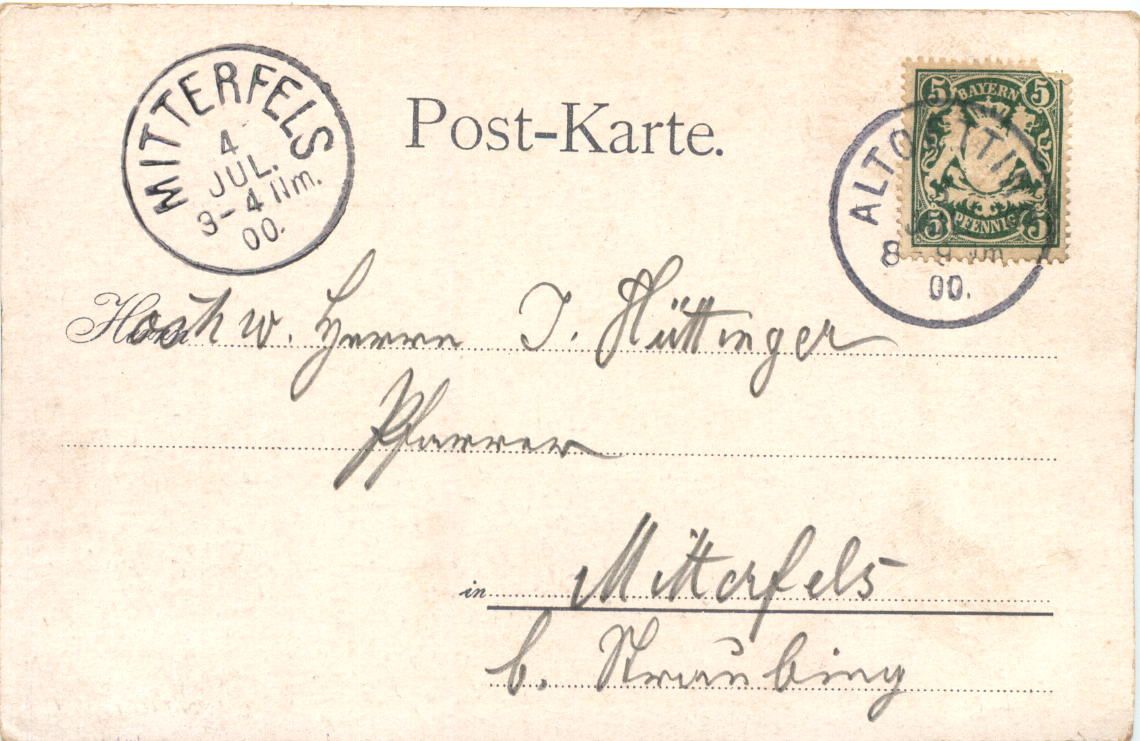 MITTERFELS
4
JUL.
3-4 Nm.
00.
Post-Karte.
5 BAYERN 5
5 PFENNIG 5
ALTOETTING
8 9
00.
Hochw. Herrn J. Hüttinger
Pfarrer
in Mitterfels
b. Straubing